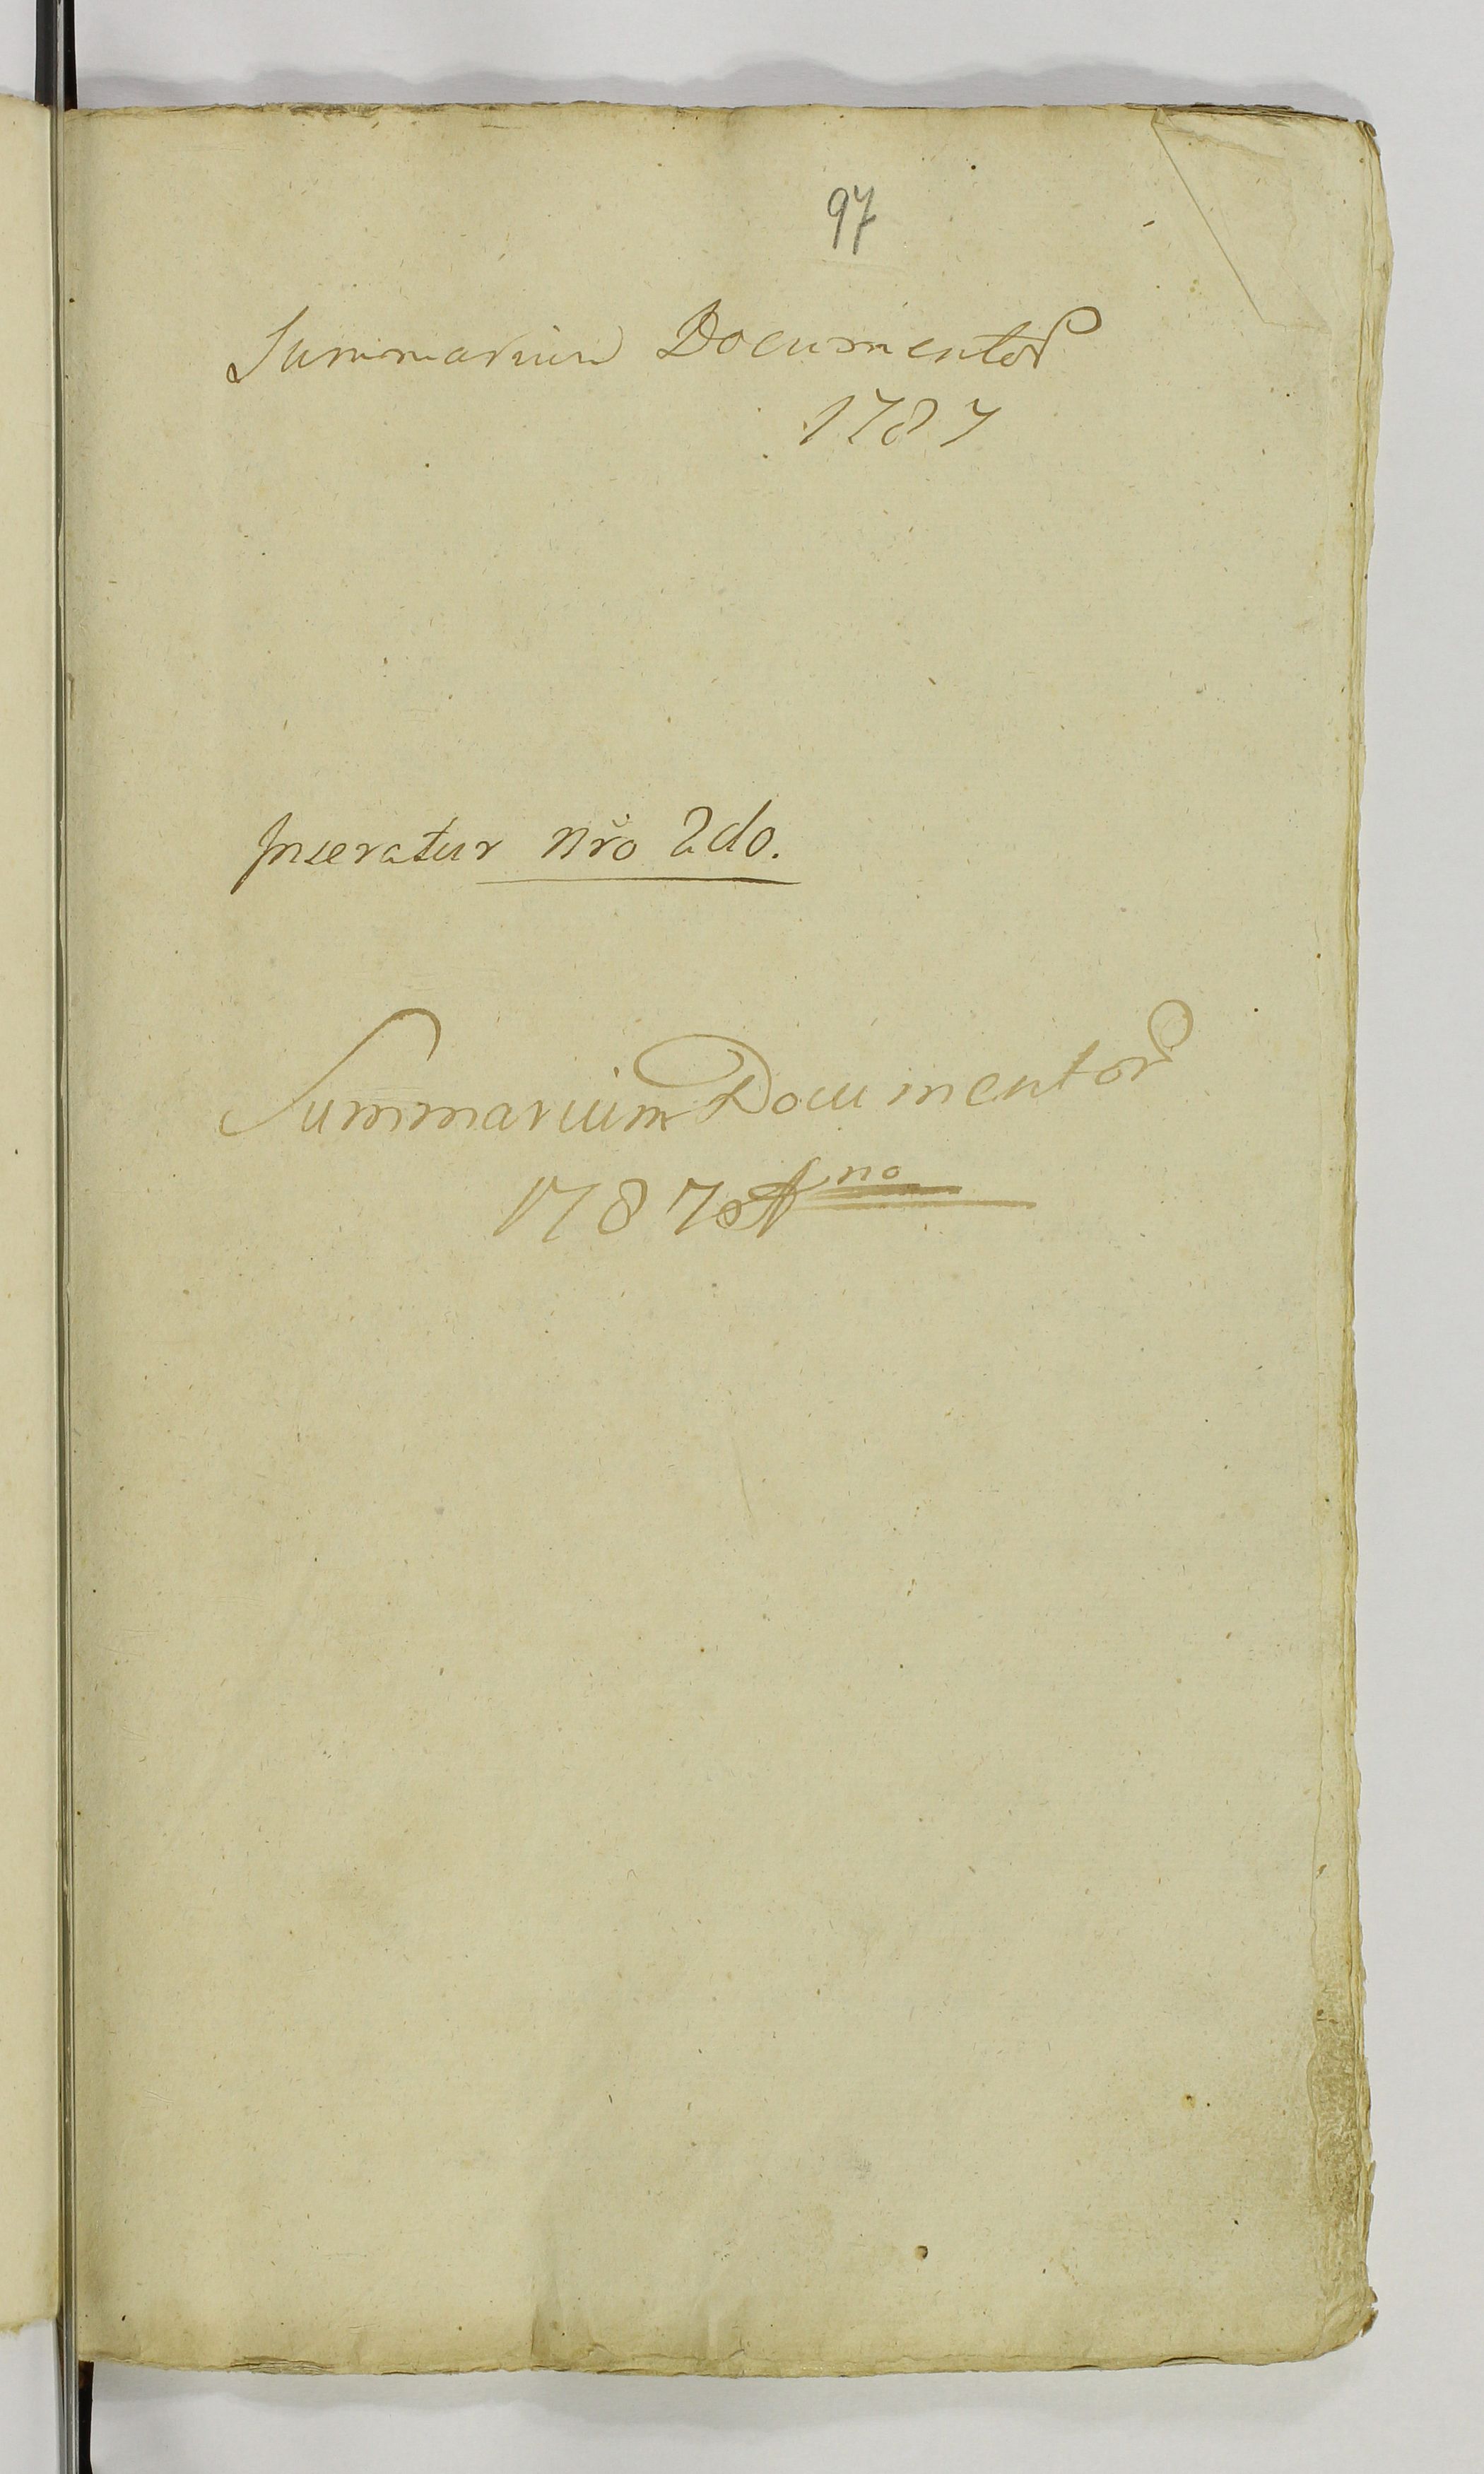 97
Summarium Documentor
1787
Inseratur nro 2do.
Summarium Documentor
1787 Ano